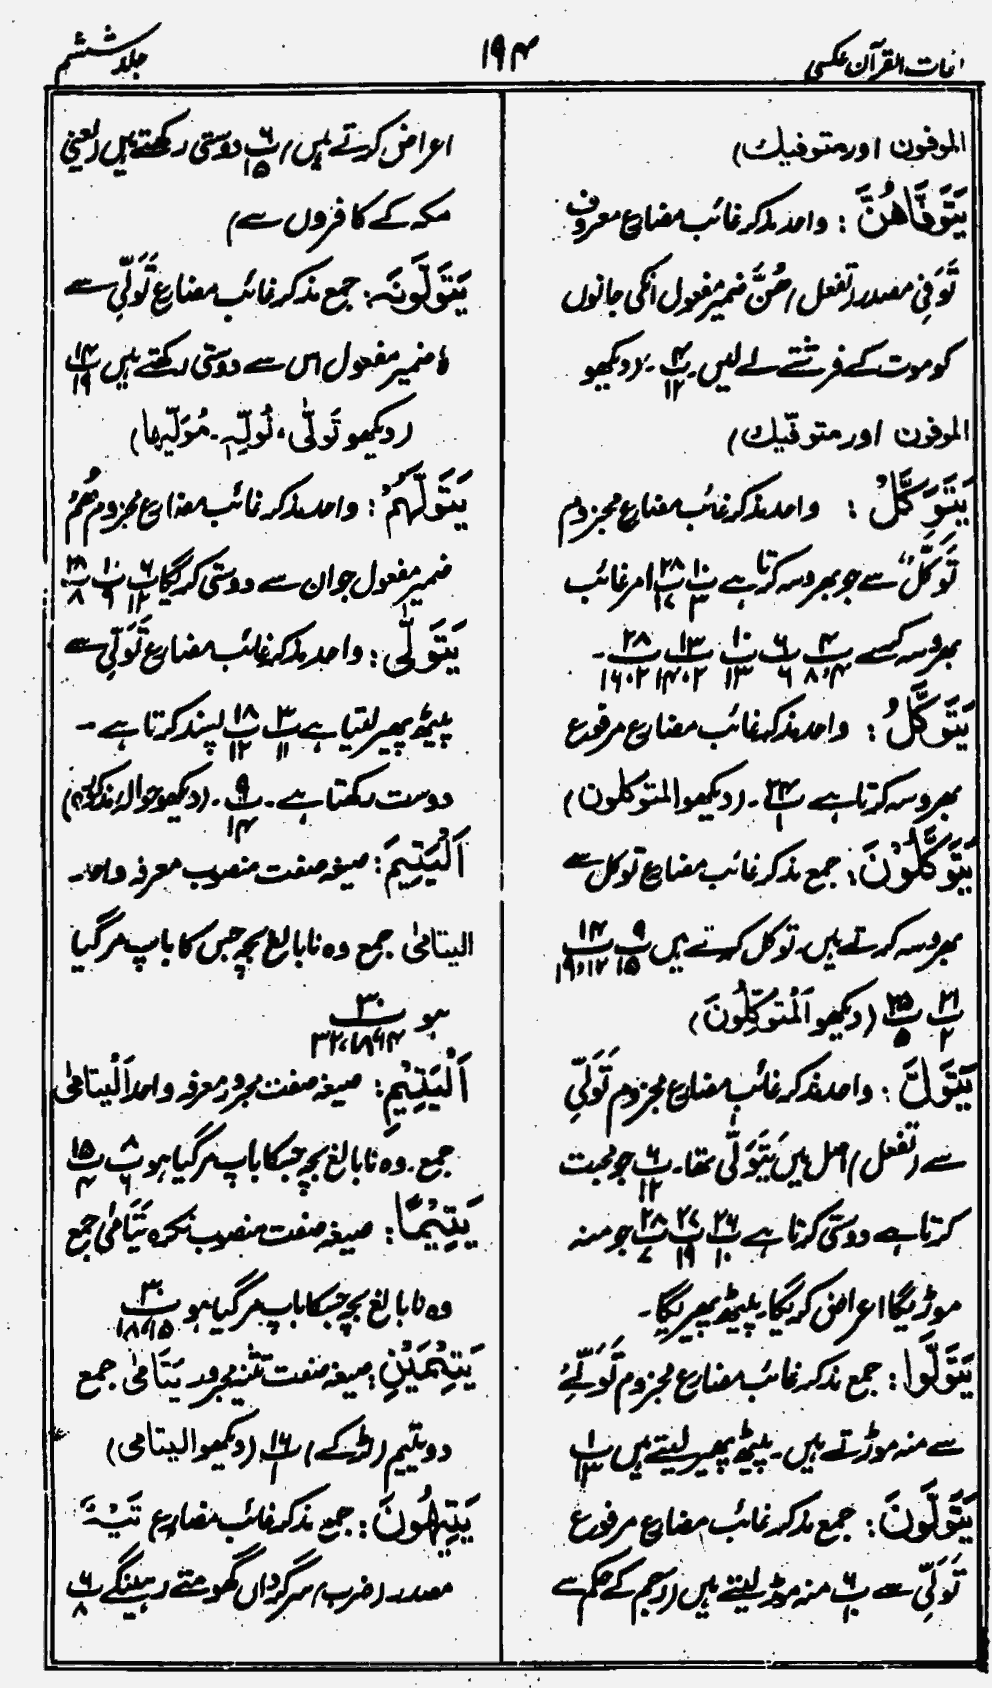 لغات القرآن عکسی
۱۹۴
جلد ششم
الموفون اور متوفیك)
یَتَوَفَّاهُنَّ : واحد مذکر غائب مضارع معروف
تَوَفِّیْ مصدر (تفعل) هُنَّ ضمیر مفعول انکی جانوں
کو موت کے فرشتے لے لیں۔ پ ۴/۱۲ ۔ (دیکھو
الموفون اور متوفّیك)
یَتَوَکَّلْ : واحد مذکر غائب مضارع مجزوم
تَوَکُّلٌ سے جو بھروسہ کرتا ہے پ ۱۰/۳ پ ۲۸/۱۷ امر غائب
بھروسہ کرے پ ۴/۸،۴ پ ۶/۶ پ ۱۰/۱۳ پ ۱۳/۱۴،۲ پ ۲۸/۱۶،۲ ۔
یَتَوَکَّلُ : واحد مذکر غائب مضارع مرفوع
بھروسہ کرتا ہے پ ۲۴/۱ ۔ (دیکھو المتوکلون)
یَتَوَکَّلُوْنَ : جمع مذکر غائب مضارع توکل سے
بھروسہ کرتے ہیں۔ توکل کرتے ہیں پ ۹/۱۵ پ ۱۴/۱۹،۱۲
پ ۲۱/۲ پ ۲۵/۵ (دیکھو اَلْمُتَوَکِّلُوْنَ)
یَتَوَلَّ : واحد مذکر غائب مضارع مجزوم تَوَلِّیْ
سے (تفعل) اصل میں یَتَوَلّٰی تھا۔ پ ۶/۱۲ جو محبت
کرتا ہے دوستی کرتا ہے پ ۲۶/۱۰ پ ۲۷/۱۹ پ ۲۸/۷ جو منہ
موڑیگا اعراض کریگا۔ پیٹھ پھیریگا۔
یَتَوَلَّوْا : جمع مذکر غائب مضارع مجزوم تَوَلِّیْ
سے منہ موڑتے ہیں۔ پیٹھ پھیر لیتے ہیں پ ۱/۱۳
یَتَوَلَّوْنَ : جمع مذکر غائب مضارع مرفوع
تَوَلِّیْ سے پ ۶/۱۰ منہ موڑ لیتے ہیں (رجم کے حکم سے
اعراض کرتے ہیں) پ ۶/۱۵ دوستی رکھتے ہیں (یعنی
مکہ کے کافروں سے)
یَتَوَلَّوْنَہٗ : جمع مذکر غائب مضارع تَوَلِّیْ سے
ہٗ ضمیر مفعول اس سے دوستی رکھتے ہیں پ ۱۴/۱۹
(دیکھو تَوَلّٰی، نُوَلِّہٖ۔ مُوَلِّیْہَا)
یَتَوَلَّہُمْ : واحد مذکر غائب مضارع مجزوم ھُمْ
ضمیر مفعول جو ان سے دوستی کریگا پ ۶/۱۲ پ ۱۰/۹ پ ۲۸/۸
یَتَوَلّٰی : واحد مذکر غائب مضارع تَوَلِّیْ سے
پیٹھ پھیر لیتا ہے پ ۳/۱۱ پ ۱۸/۱۲ پسند کرتا ہے ۔
دوست رکھتا ہے ۔ پ ۹/۱۴ ۔ (دیکھو حوالہ مذکورہ)
اَلْیَتِیْمَ : صیغہ صفت منصوب معرفہ واحد۔
الیتامیٰ جمع وہ نابالغ بچہ جس کا باپ مرگیا
ہو پ ۳۰
اَلْیَتِیْمِ : صیغہ صفت مجرور معرفہ واحد اَلْیَتامیٰ
جمع ۔ وہ نابالغ بچہ جسکا باپ مرگیا ہو پ ۸/۶ پ ۱۵/۴
یَتِیْمًا : صیغہ صفت منصوب نکرہ یَتَامیٰ جمع
وہ نابالغ بچہ جسکا باپ مرگیا ہو پ ۳۰/۱۸،۱۵
یَتِیْمَیْنِ : صیغہ صفت تثنیہ مجرور یَتَامیٰ جمع
دو یتیم (لڑکے) پ ۱۶/۱ (دیکھو الیتامی)
یَتِیْہُوْنَ : جمع مذکر غائب مضارع تَیْہٌ
مصدر (ضرب) سرگرداں گھومتے رہینگے پ ۶/۸